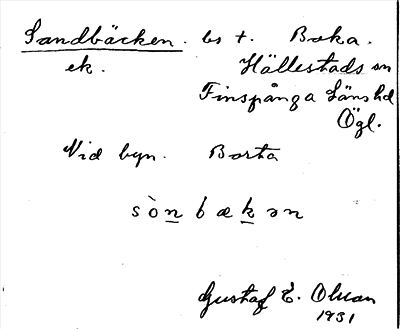 Sandbäcken. bs t. Boka.
ek. Hällestads sn
Finspånga Länshd
Ögl.
Vid byn. Borta
sònbækən
Gustaf E. Olsson
1931